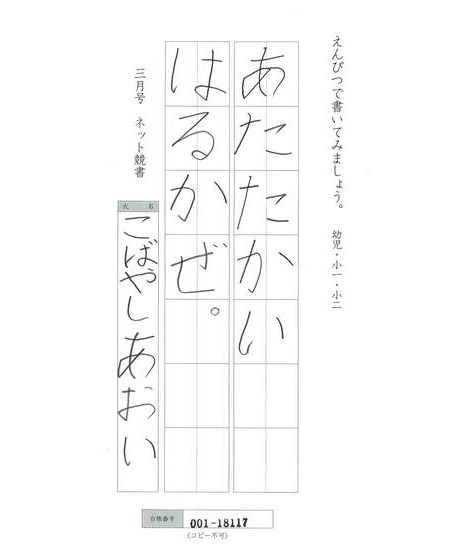 えんぴつで書いてみましょう。 幼児・小一・小二
あたたかい
はるかぜ。
三月号 ネット競書
氏名
こばやしあおい
台帳番号 001-18117
(コピー不可)